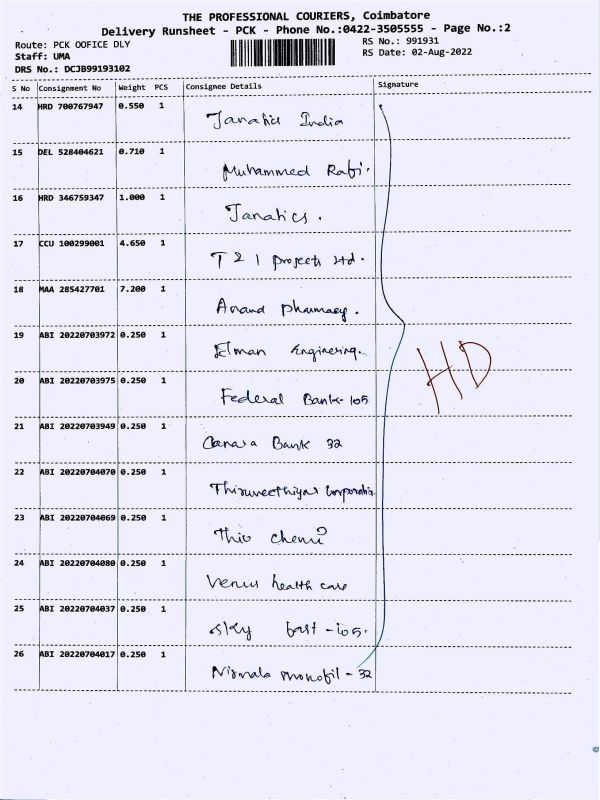 THE PROFESSIONAL COURIERS, Coimbatore
Delivery Runsheet - PCK - Phone No.:0422-3505555 - Page No.:2
Route: PCK OOFICE DLY
RS No.: 991931
Staff: UMA
RS Date: 02-Aug-2022
DRS No.: DCJB99193102
S No Consignment No Weight PCS Consignee Details Signature
14 HRD 700767947 0.550 1 Janatics India
15 DEL 528404621 0.710 1 Muhammed Rafi.
16 HRD 346759347 1.000 1 Janatics.
17 CCU 100299001 4.650 1 T 2 1 Projects Ltd.
18 MAA 285427701 7.200 1 Anand Pharmacy.
19 ABI 20220703972 0.250 1 Elman Enginering.
HD
20 ABI 20220703975 0.250 1 Federal Bank-105
21 ABI 20220703949 0.250 1 Canara Bank 32
22 ABI 20220704070 0.250 1
23 ABI 20220704069 0.250 1
24 ABI 20220704080 0.250 1 Venus health care
25 ABI 20220704037 0.250 1 Sky fast -105.
26 ABI 20220704017 0.250 1 Nirmala monofil - 32